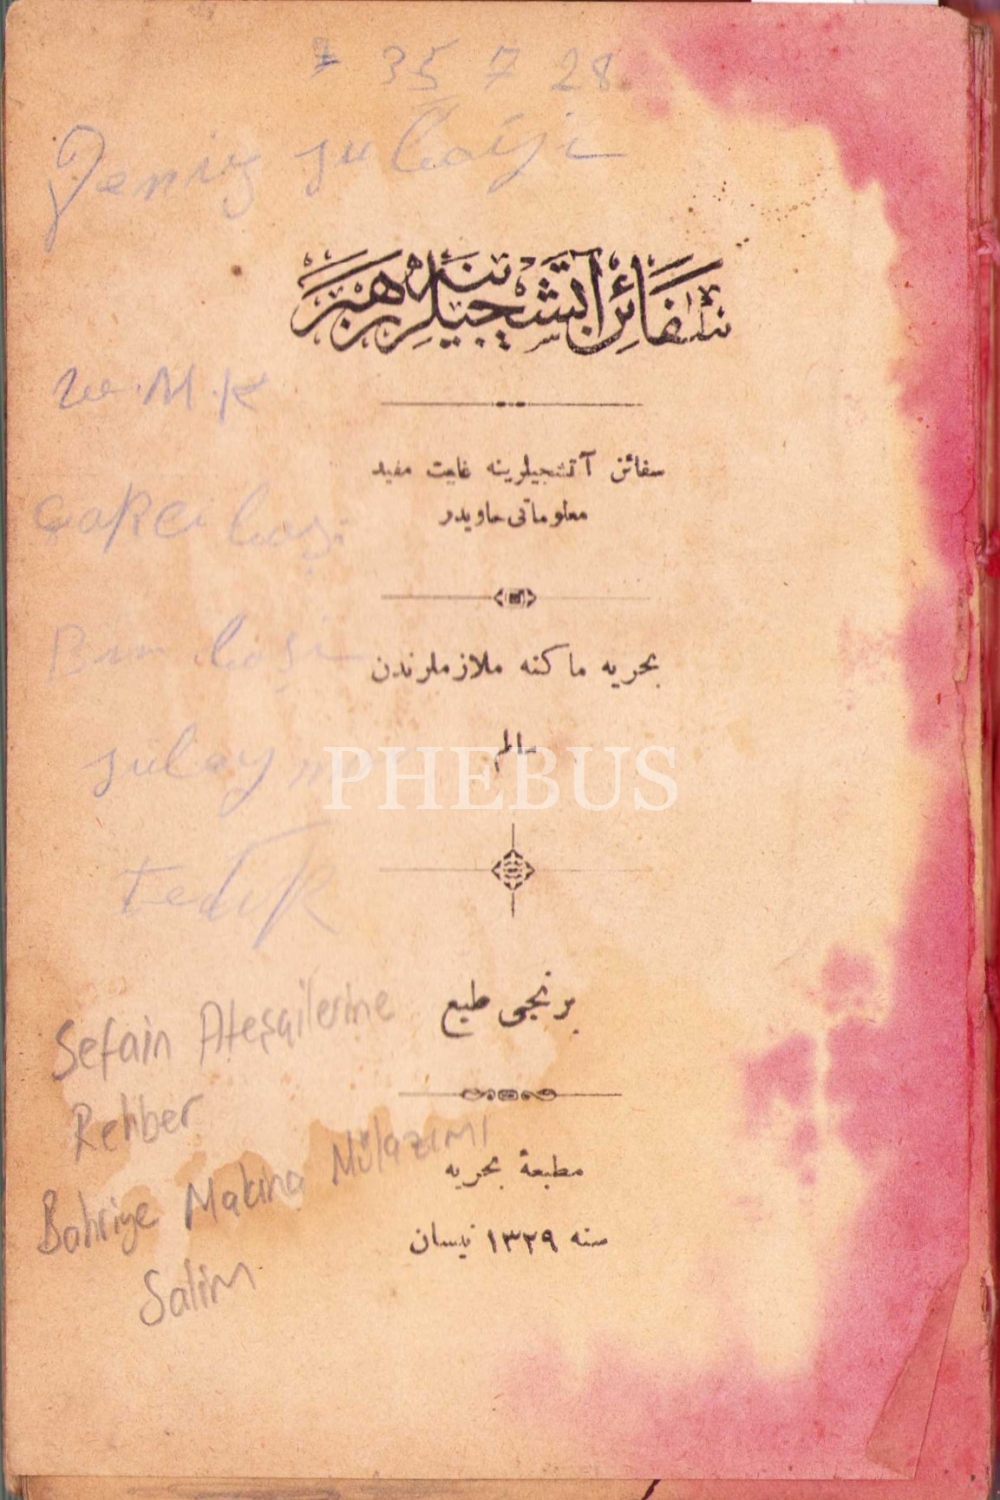 35 7 28
Deniz subayi
سفائن آتشجیلرینه رهبر
سفائن آتشجیلرینه غایت مفید
معلوماتی حاویدر
بحریه ماكنه ملازملرندن
سالم
PHEBUS
برنجی طبع
Sefain Ateşçilerine
Rehber
Bahriye Makina Mülazımı
Salim
مطبعهٔ بحریه
سنه ١٣٢٩ نیسان